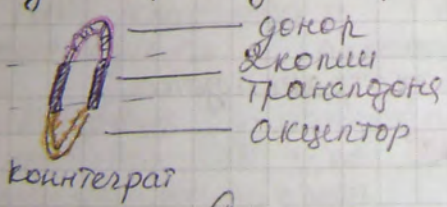 донор
2 копии
транспозона
акцептор
коинтеграт